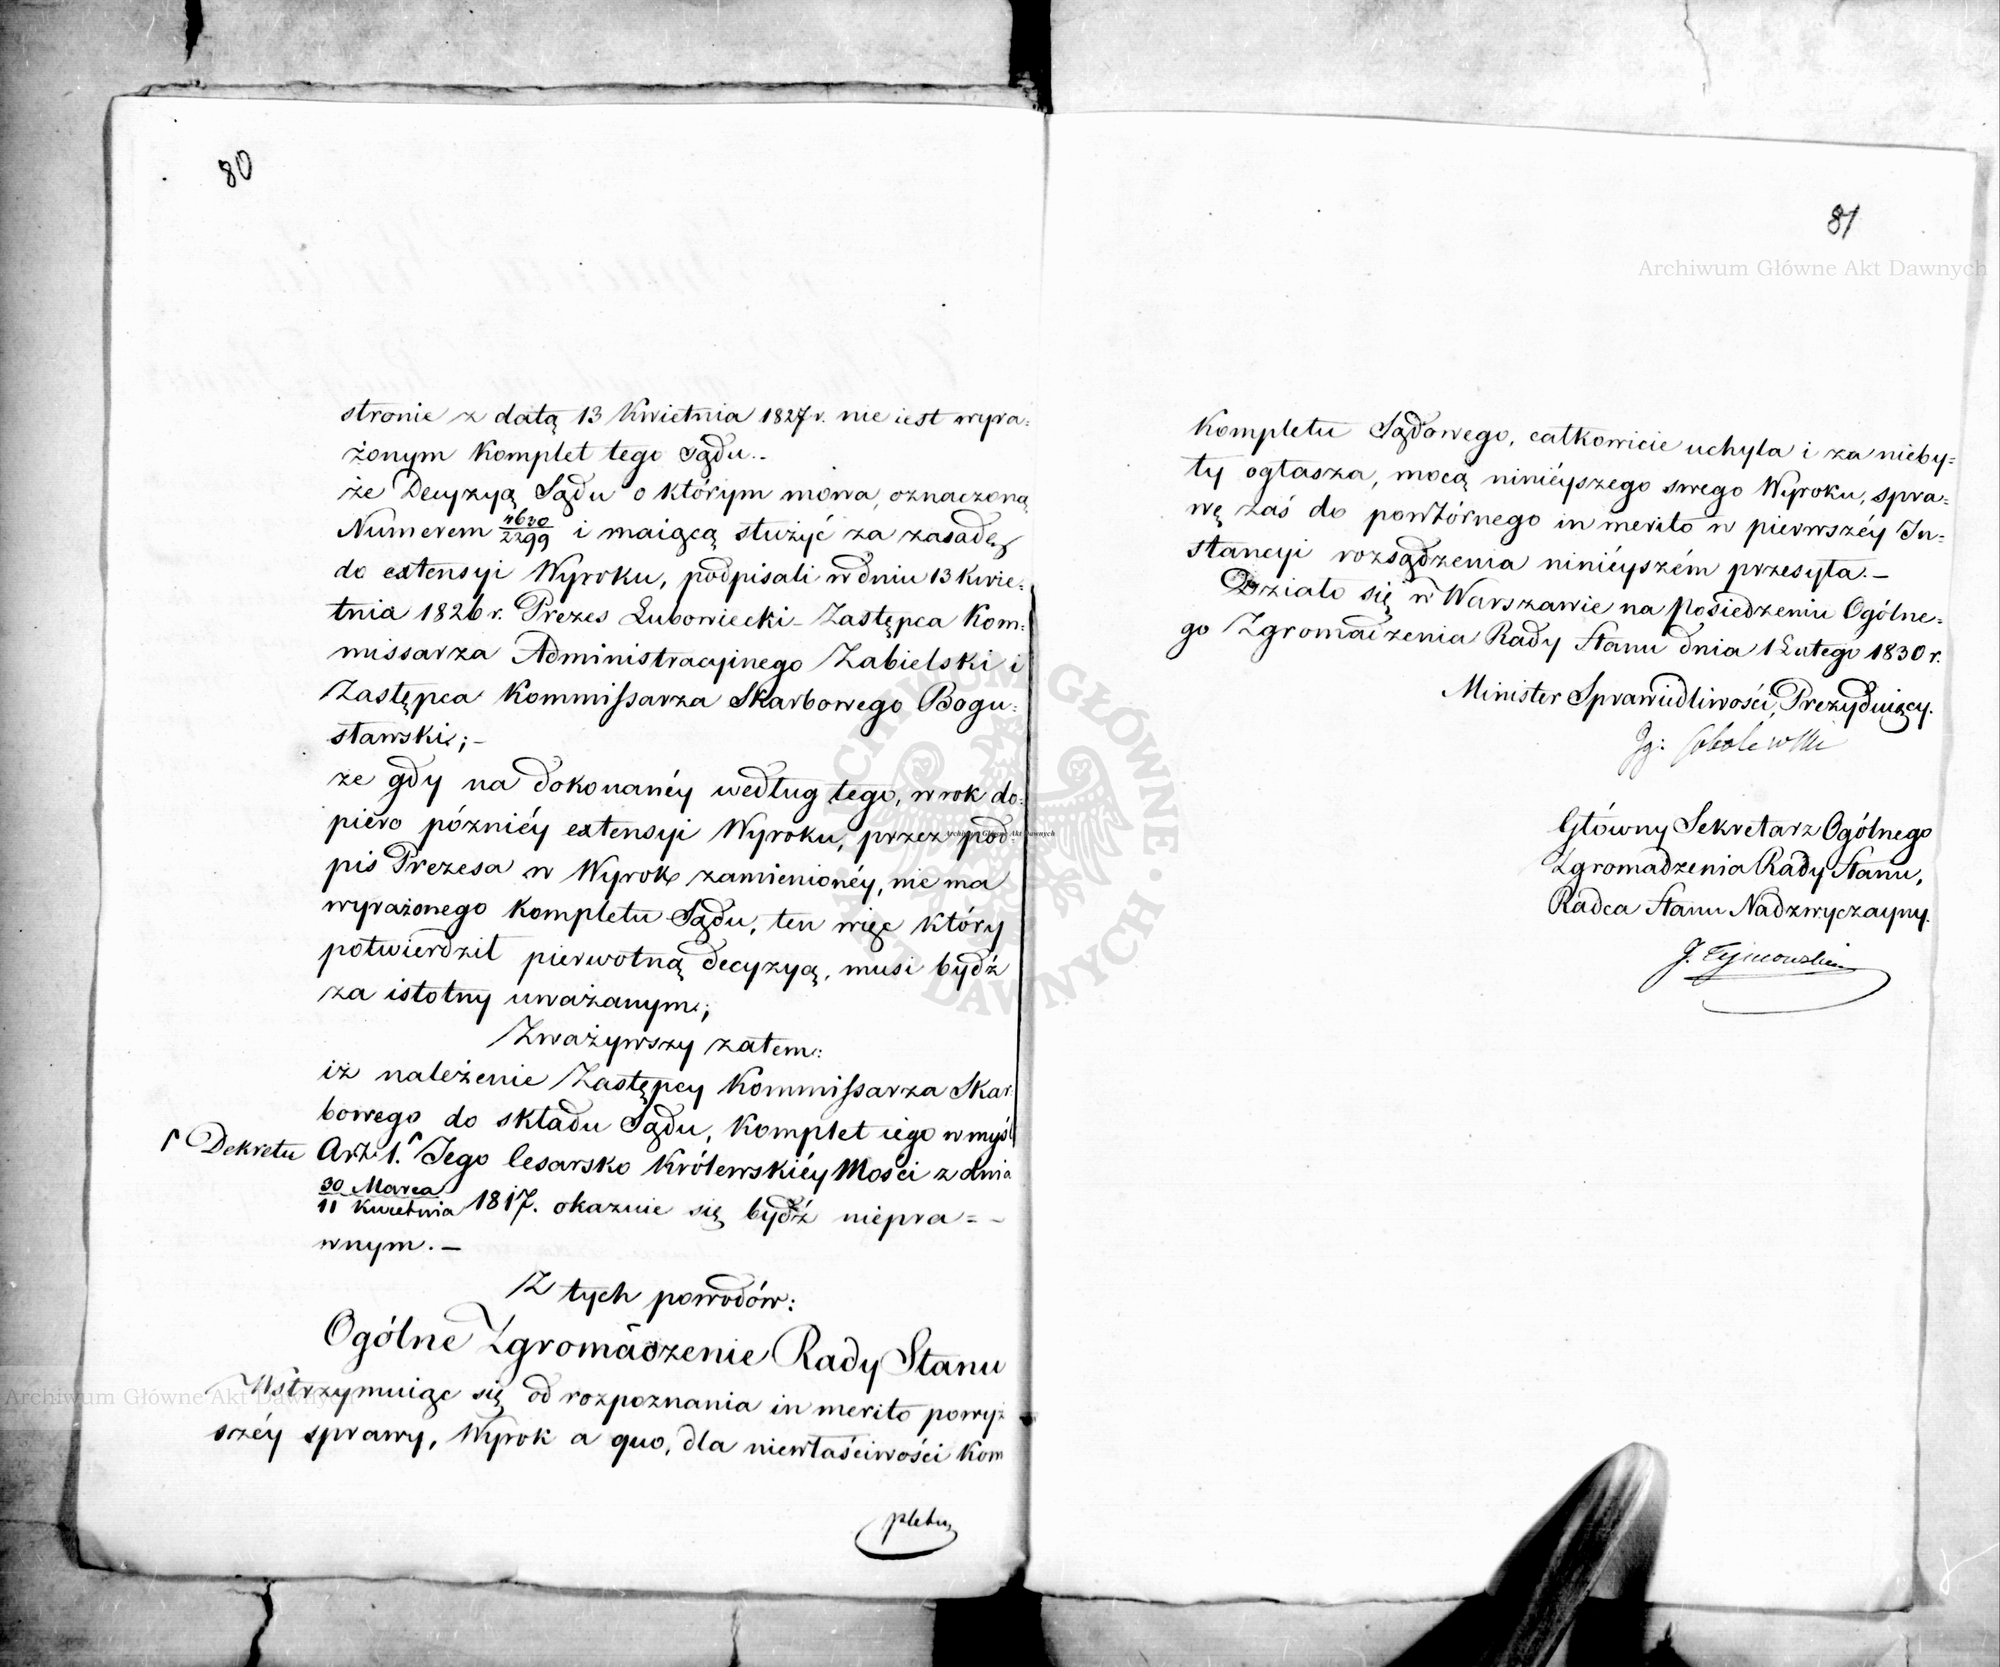 80
stronie z datą 13 Kwietnia 1827 r. nie iest wyra=
żonym Komplet tego Sądu.-
że Decyzyą Sądu o którym mowa, oznaczoną
Numerem 4630/2299 i maiącą służyć za zasadę
do extensyi Wyroku, podpisali w dniu 13 Kwie=
tnia 1826 r. Prezes Lubowiecki - Zastępca Kom=
missarza Administracyinego Zabielski i
Zastępca Kommissarza Skarbowego Bogu=
sławski; -
że gdy na dokonanéy według tego, w rok do=
piero późniéy extensyi Wyroku, przez pod=
pis Prezesa w Wyrok zamienionéy, nie ma
wyrażonego kompletu Sądu, ten więc który
potwierdził pierwotną decyzyą, musi bydź
za istotny uważanym;
Zważywszy zatem:
iż należenie Zastępcy Kommissarza Skar=
bowego do składu Sądu, Komplet iego w myśl
Dekretu
Art: 1. Jego Cesarsko Królewskiéy Mości z dnia
30 Marca/11 Kwietnia 1817. okazuie się bydź niepra=-
wnym.-
Z tych powodów:
Ogólne Zgromadzenie Rady Stanu
Wstrzymuiąc się od rozpoznania in merito powyż
széy sprawy, Wyrok a quo, dla niewłaściwości Kom
pletu
81
Archiwum Główne Akt Dawnych
Kompletu Sądowego, całkowicie uchyla i za nieby=
ły ogłasza, mocą niniéyszego swego Wyroku, spra=
wę zaś do powtórnego in merito w pierwszéy In=
stancyi rozsądzenia niniéyszém przesyła.-
Działo się w Warszawie na Posiedzeniu Ogólne=
go Zgromadzenia Rady Stanu dnia 1 Lutego 1830 r.
Minister Sprawiedliwości, Prezyduiący.
Ig: Sobolewski
Główny Sekretarz Ogólnego
Zgromadzenia Rady Stanu,
Radca Stanu Nadzwyczayny.
J. Tymowski
ARCHIWUM GŁÓWNE AKT DAWNYCH
Archiwum Główne Akt Dawnych
Archiwum Główne Akt Dawnych